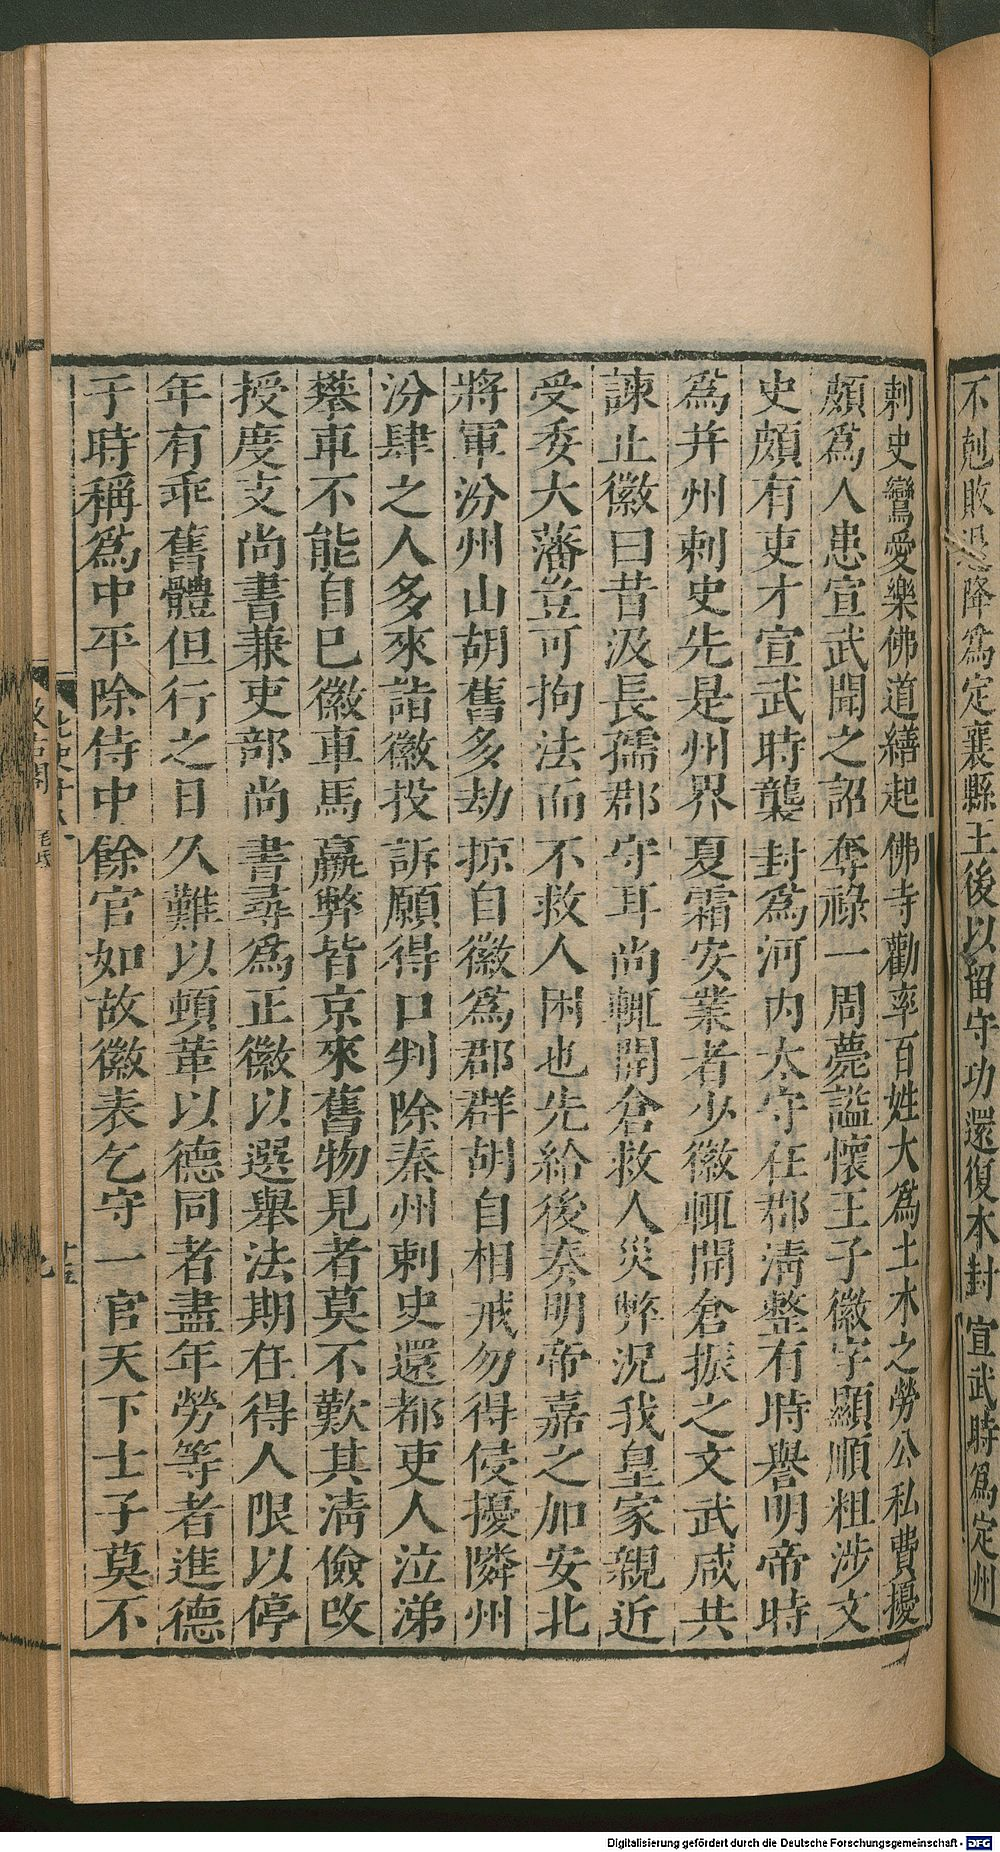 不剋敗退降爲定襄縣王後以留守功還復本封宣武時爲定州
刺史鸞愛樂佛道繕起佛寺勸率百姓大爲土木之勞公私費擾
頗爲人患宣武聞之詔奪祿一周薨謚懷王子徽字顯順粗涉文
史頗有吏才宣武時襲封爲河內太守在郡清整有時譽明帝時
爲并州刺史先是州界夏霜安業者少徽輒開倉振之文武咸共
諫止徽曰昔汲長孺郡守耳尚輒開倉救人災弊況我皇家親近
受委大藩豈可拘法而不救人困也先給後奏明帝嘉之加安北
將軍汾州山胡舊多劫掠自徽爲郡群胡自相戒勿得侵擾隣州
汾肆之人多來詣徽投訴願得口判除秦州刺史還都吏人泣涕
攀車不能自已徽車馬羸弊皆京來舊物見者莫不歎其清儉改
授度支尚書兼吏部尚書尋爲正徽以選舉法期在得人限以停
年有乖舊體但行之日久難以頓革以德同者盡年勞等者進德
于時稱爲中平除侍中餘官如故徽表乞守一官天下士子莫不
北史十八
十五
汲古閣
毛氏
Digitalisierung gefördert durch die Deutsche Forschungsgemeinschaft - DFG